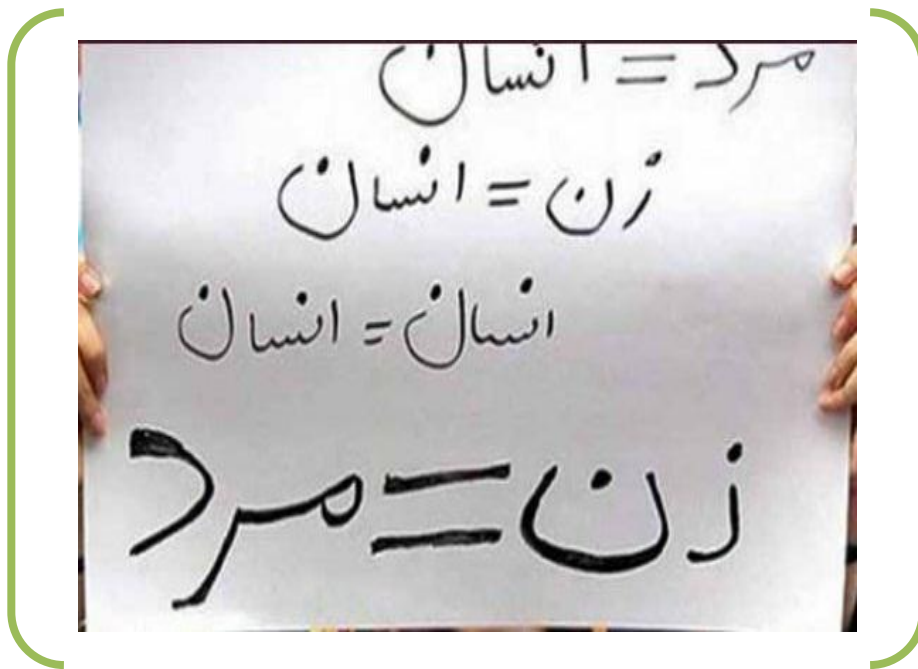 مرد = انسان
زن = انسان
انسان = انسان
زن = مرد